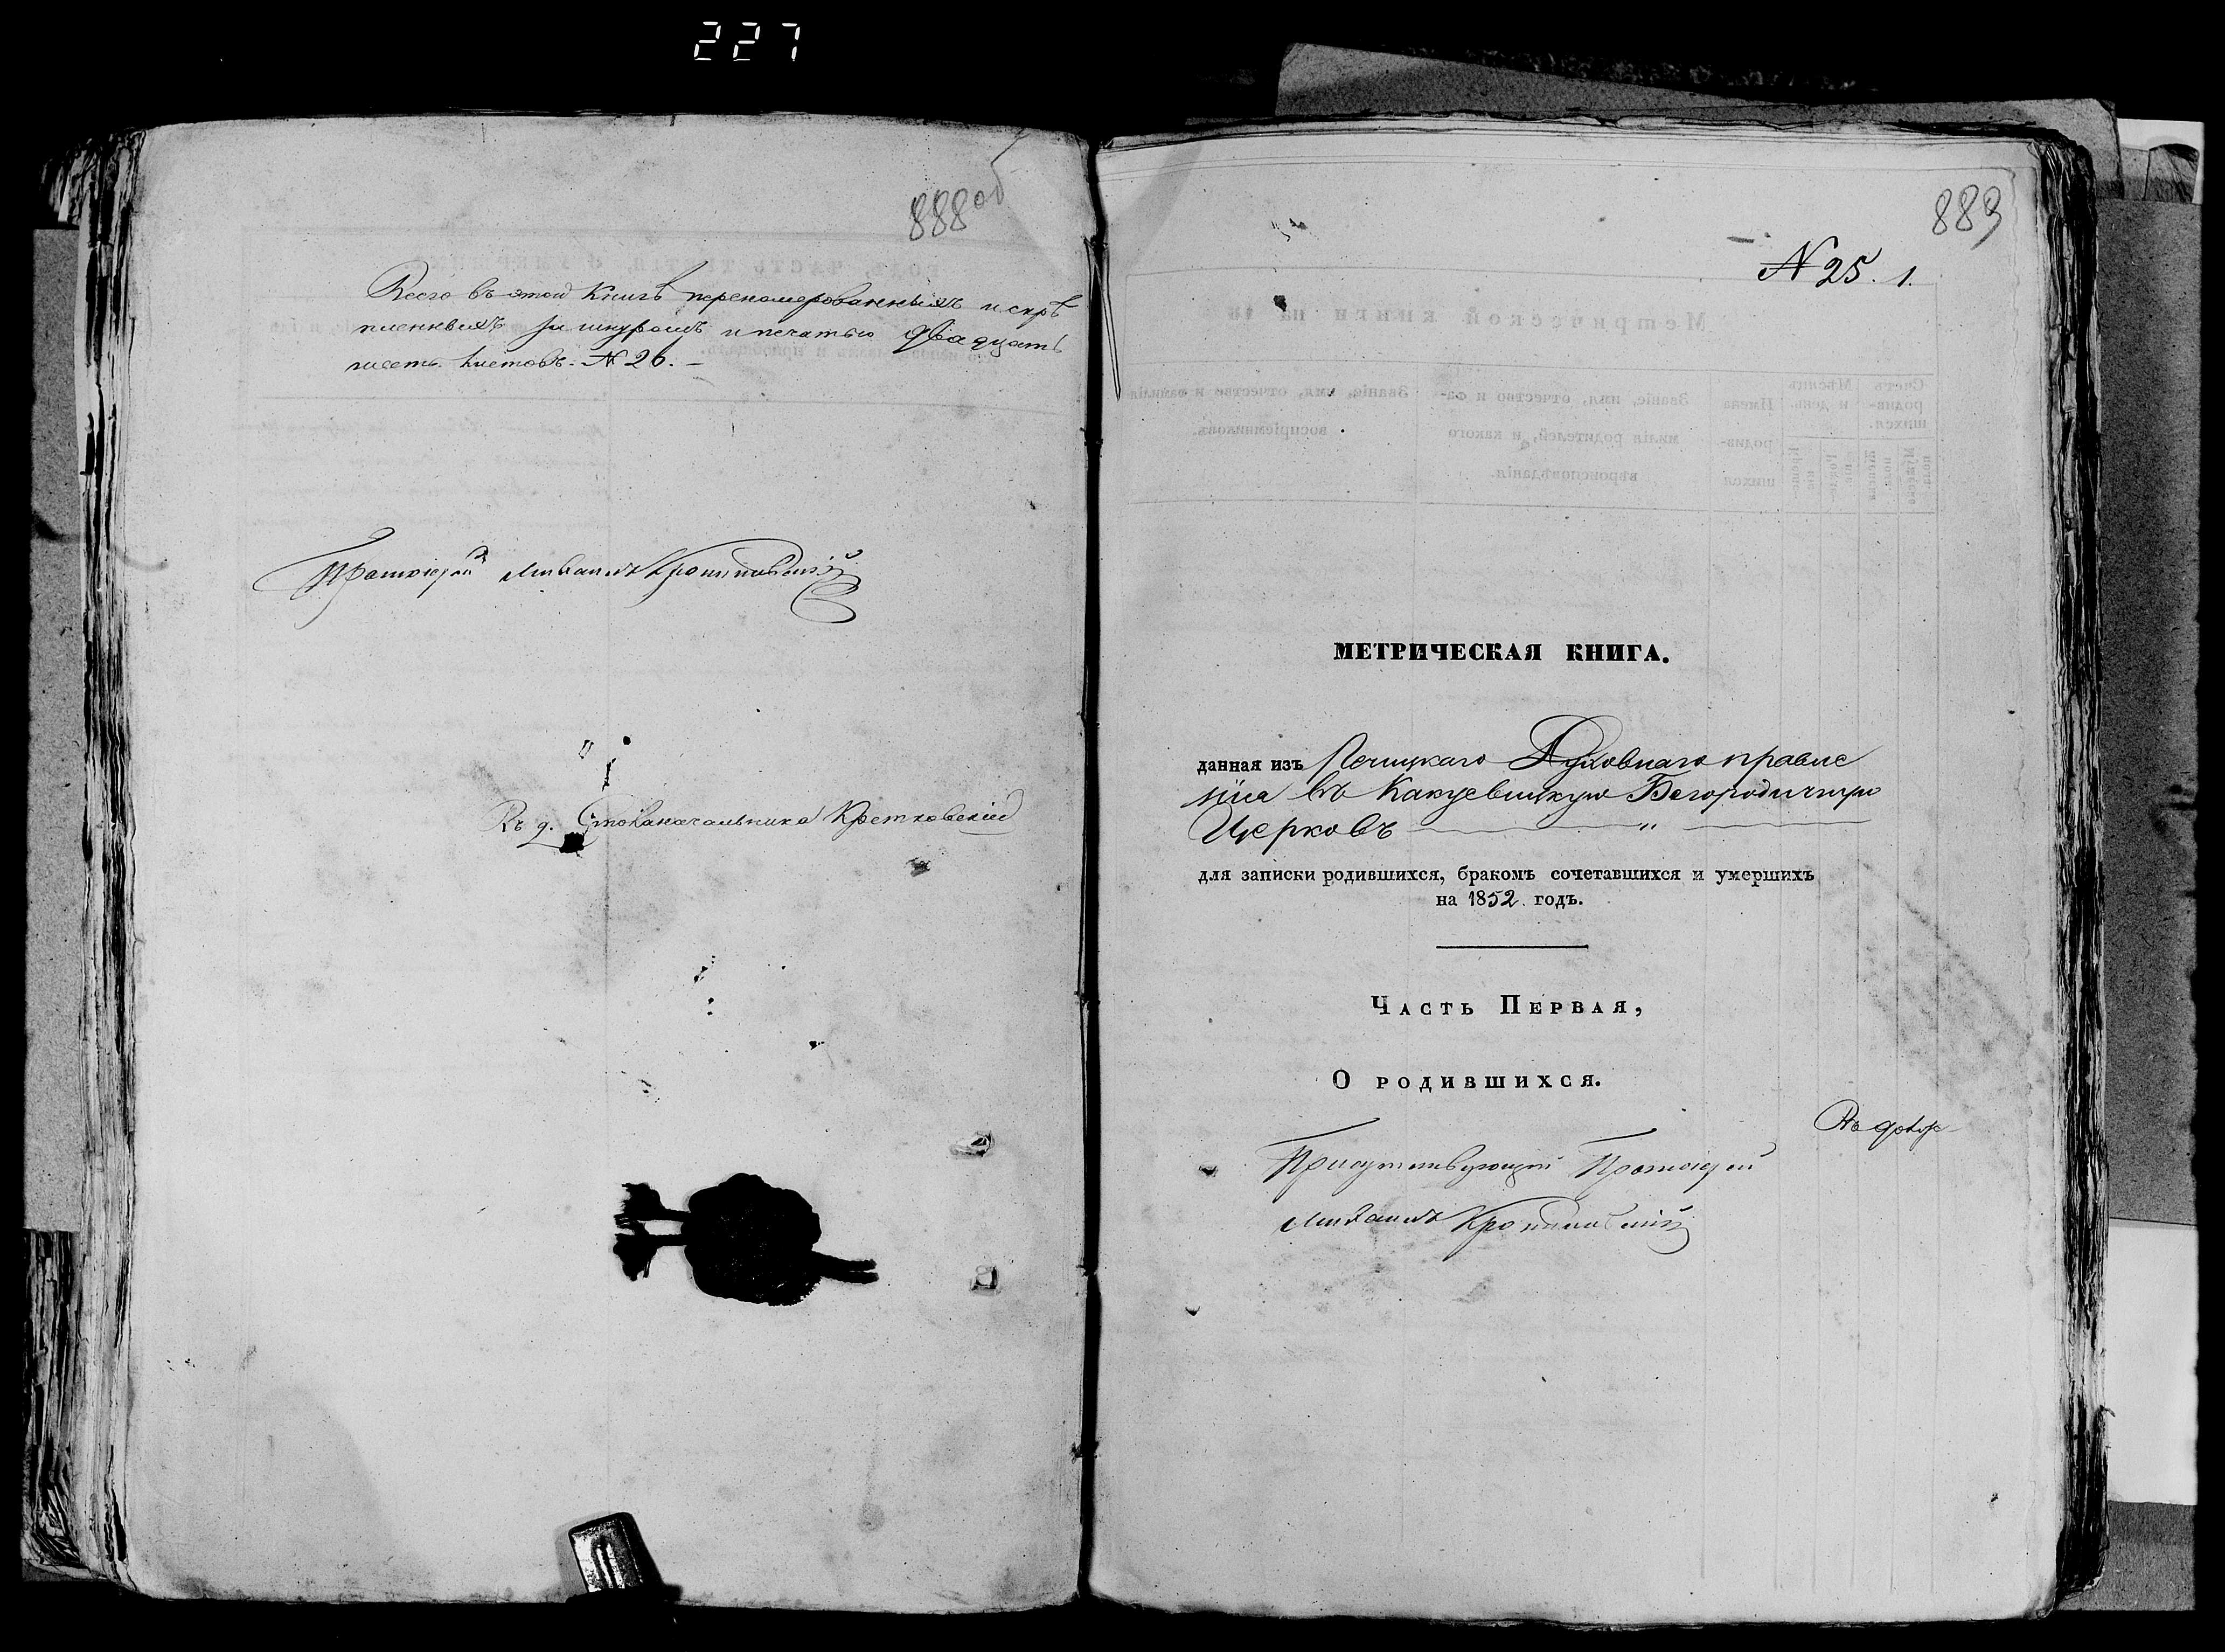 227
888 об
Всего въ этой Книгѣ перенумерованныхъ и скрѣ
пленныхъ за шнуромъ и печатью двадцать
шесть листовъ. № 26. –
Протоіерей Михаилъ
Въ д. Столоначальника Кретковскій
889
№ 25. 1.
МЕТРИЧЕСКАЯ КНИГА.
данная изъ Духовнаго правле
нія въ Какуевицкую Богородичную
Церковь ——— " ———
для записки родившихся, бракомъ сочетавшихся и умершихъ
на 1852 годъ.
ЧАСТЬ ПЕРВАЯ,
О РОДИВШИХСЯ.
Въ долж
Присутствующій Протоіерей
Михаилъ